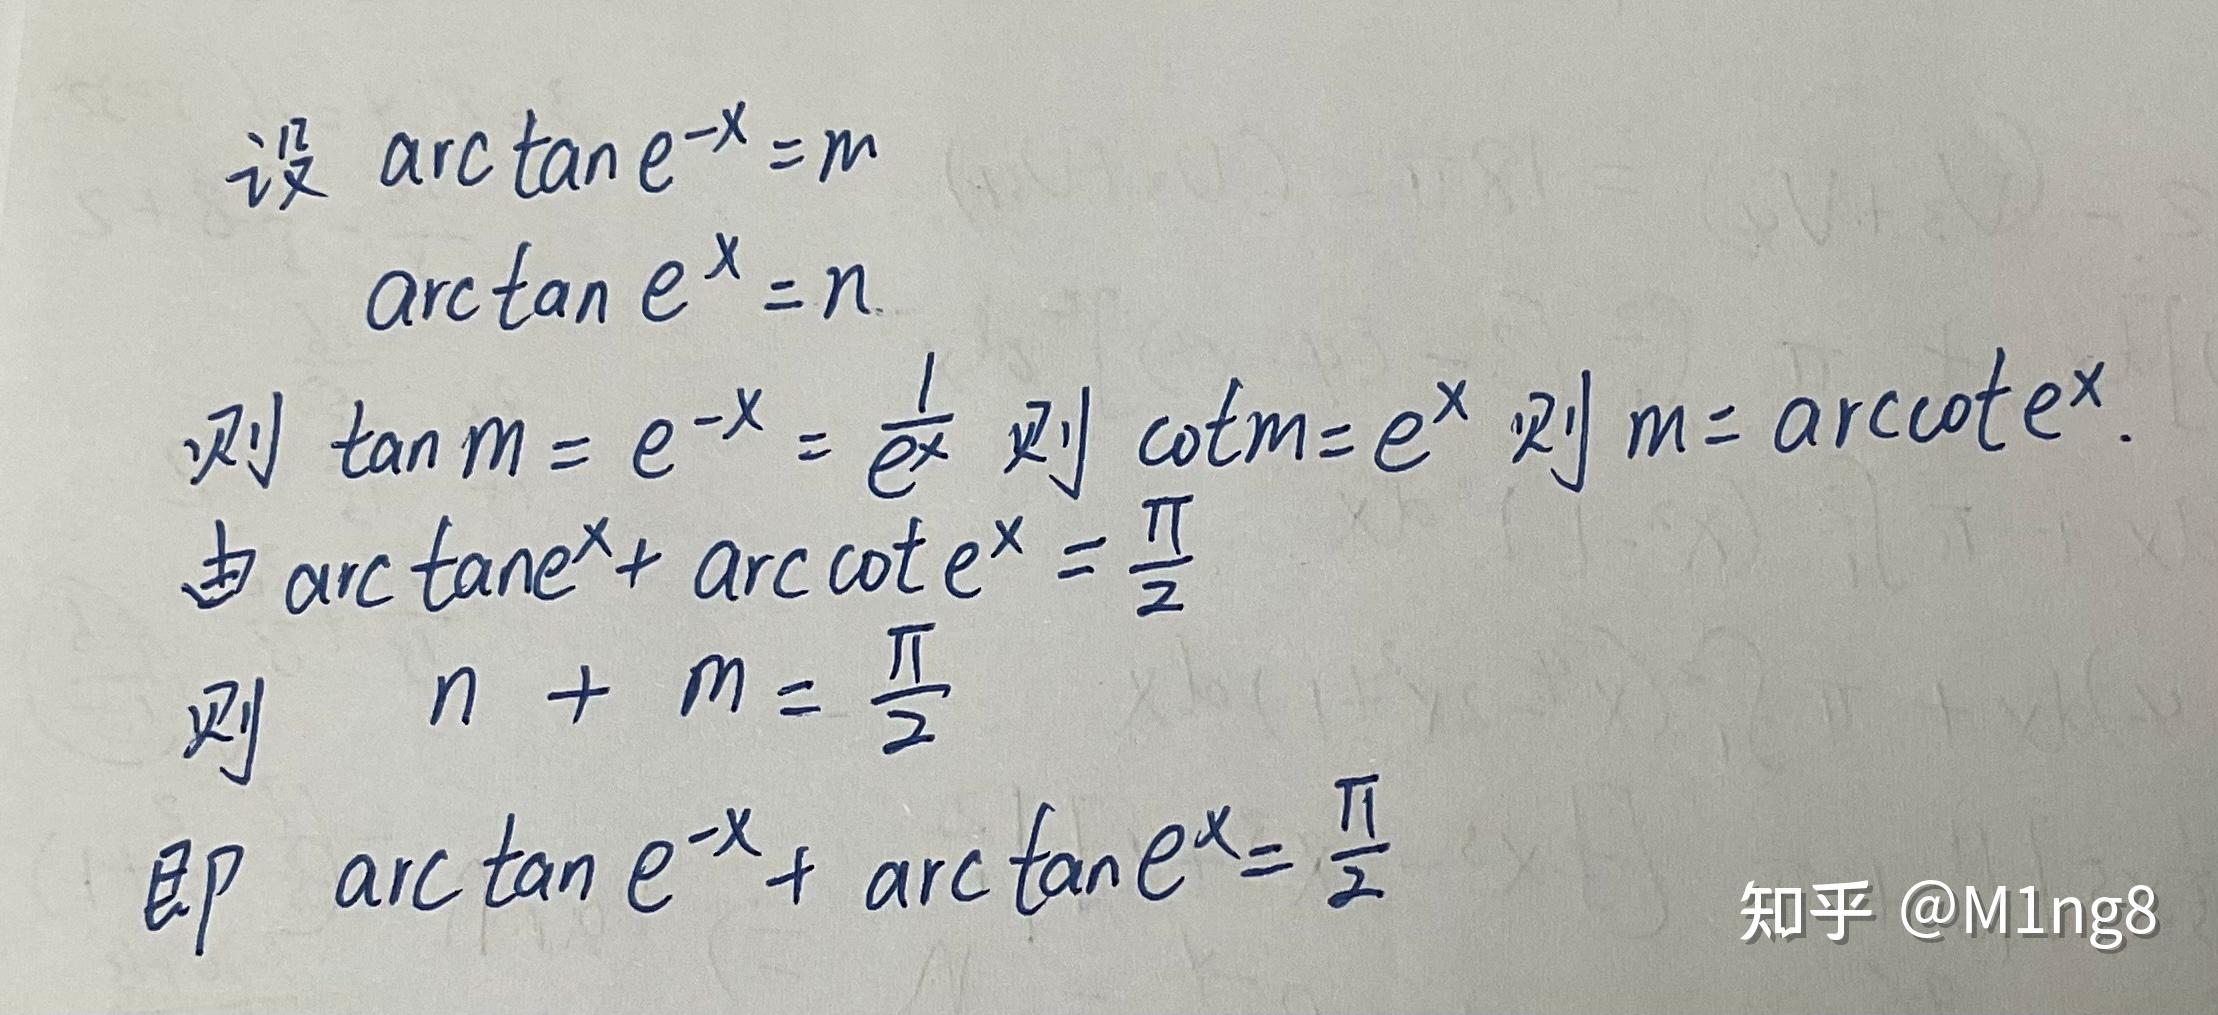 设 arctan e^{-x} = m
arctan e^x = n.
则 tan m = e^{-x} = \frac{1}{e^x} 则 cot m = e^x 则 m = arccot e^x.
由 arctan e^x + arccot e^x = \frac{π}{2}
则 n + m = \frac{π}{2}
即 arctan e^{-x} + arctan e^x = \frac{π}{2}
知乎 @M1ng8